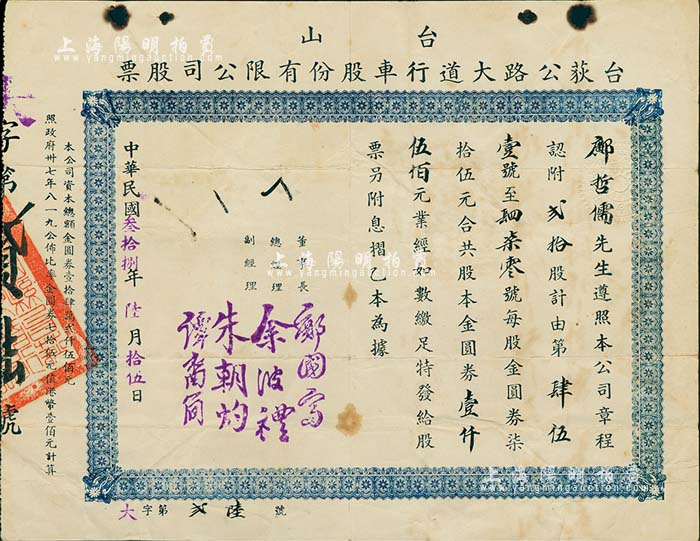 上海陽明拍賣
www.yangmingauction.com
台山
台荻公路大道行車股份有限公司股票
鄺哲儒先生遵照本公司章程
認附貳拾股計由第肆伍
壹號至肆柒零號每股金圓券柒
拾伍元合共股本金圓券壹仟
伍佰元業經如數繳足特發給股
票另附息摺乙本為據
董事長
總經理
副經理
鄺國富
余波禮
朱朝灼
中華民國叁拾捌年陸月拾伍日
本公司資本總額金圓券壹拾肆萬貳仟伍佰元
照政府卅七年八一九公佈比率金圓券七拾伍元值港幣壹佰元計算
字第
號
大字第貳陸號
上海陽明拍賣
www.yangmingauction.com